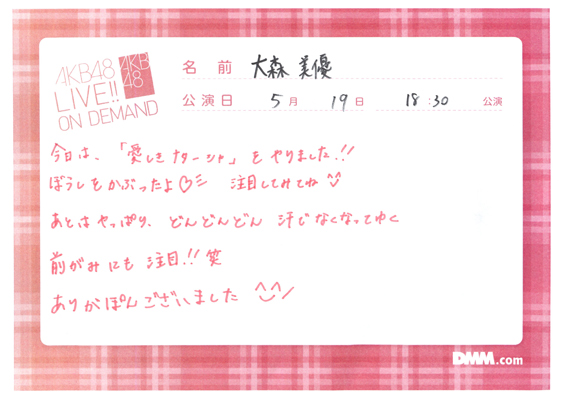 AKB48
LIVE!!
ON DEMAND
AKB
48
名 前 大森 美優
公演日 5月 19日 18:30 公演
今日は、「愛しきナターシャ」をやりました!!
ぼうしをかぶったよ♡ 注目してみてね
あとはやっぱり、どんどんどん 汗でなくなってゆく
前がみにも 注目!! 笑
ありがぽんございました ^^
DMM.com